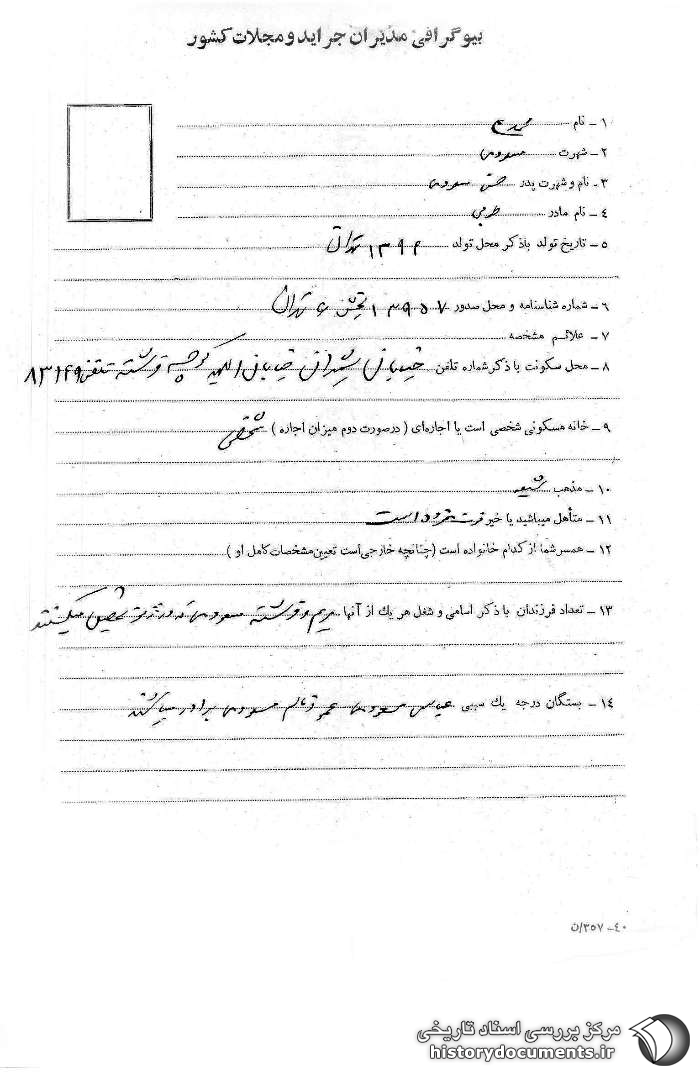 بیوگرافی مدیران جراید و مجلات کشور
۱ - نام
۲ - شهرت مسعودی
۳ - نام و شهرت پدر حسن مسعودی
۴ - نام مادر طوبی
۵ - تاریخ تولد باذکر محل تولد تهران
۶ - شماره شناسنامه و محل صدور ۱۳۹۵۷ بخش ۶ تهران
۷ - علائم مشخصه
۸ - محل سکونت با ذکر شماره تلفن خیابان شمیران خیابان الهیه کوچه فرشته تلفن ۸۳۱۴۹
۹ - خانه مسکونی شخصی است یا اجاره‌ای ( درصورت دوم میزان اجاره ) شخصی
۱۰ - مذهب شیعه
۱۱ - متأهل میباشید یا خیر فوت نموده است
۱۲ - همسر شما از کدام خانواده است (چنانچه خارجی است تعیین مشخصات کامل او )
۱۳ - تعداد فرزندان با ذکر اسامی و شغل هر یك از آنها مریم و فرشته مسعودی که در تحصیل میکنند
۱۴ - بستگان درجه یك سببی عباس مسعودی عمو و قاسم مسعودی برادر میباشند
۴۰ - ۳۵۷/ن
مرکز بررسی اسناد تاریخی
historydocuments.ir